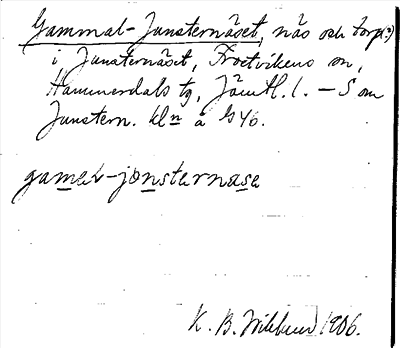 Gammal-Jonsternäset, näs och torp(?)
i Jonsternäset, Frostvikens sn,
Hammerdals tg, Jämtl. l. – S om
Jonstern. kln å GS 46.
gamel-jonsternäse
K. B. Wiklund 1906.